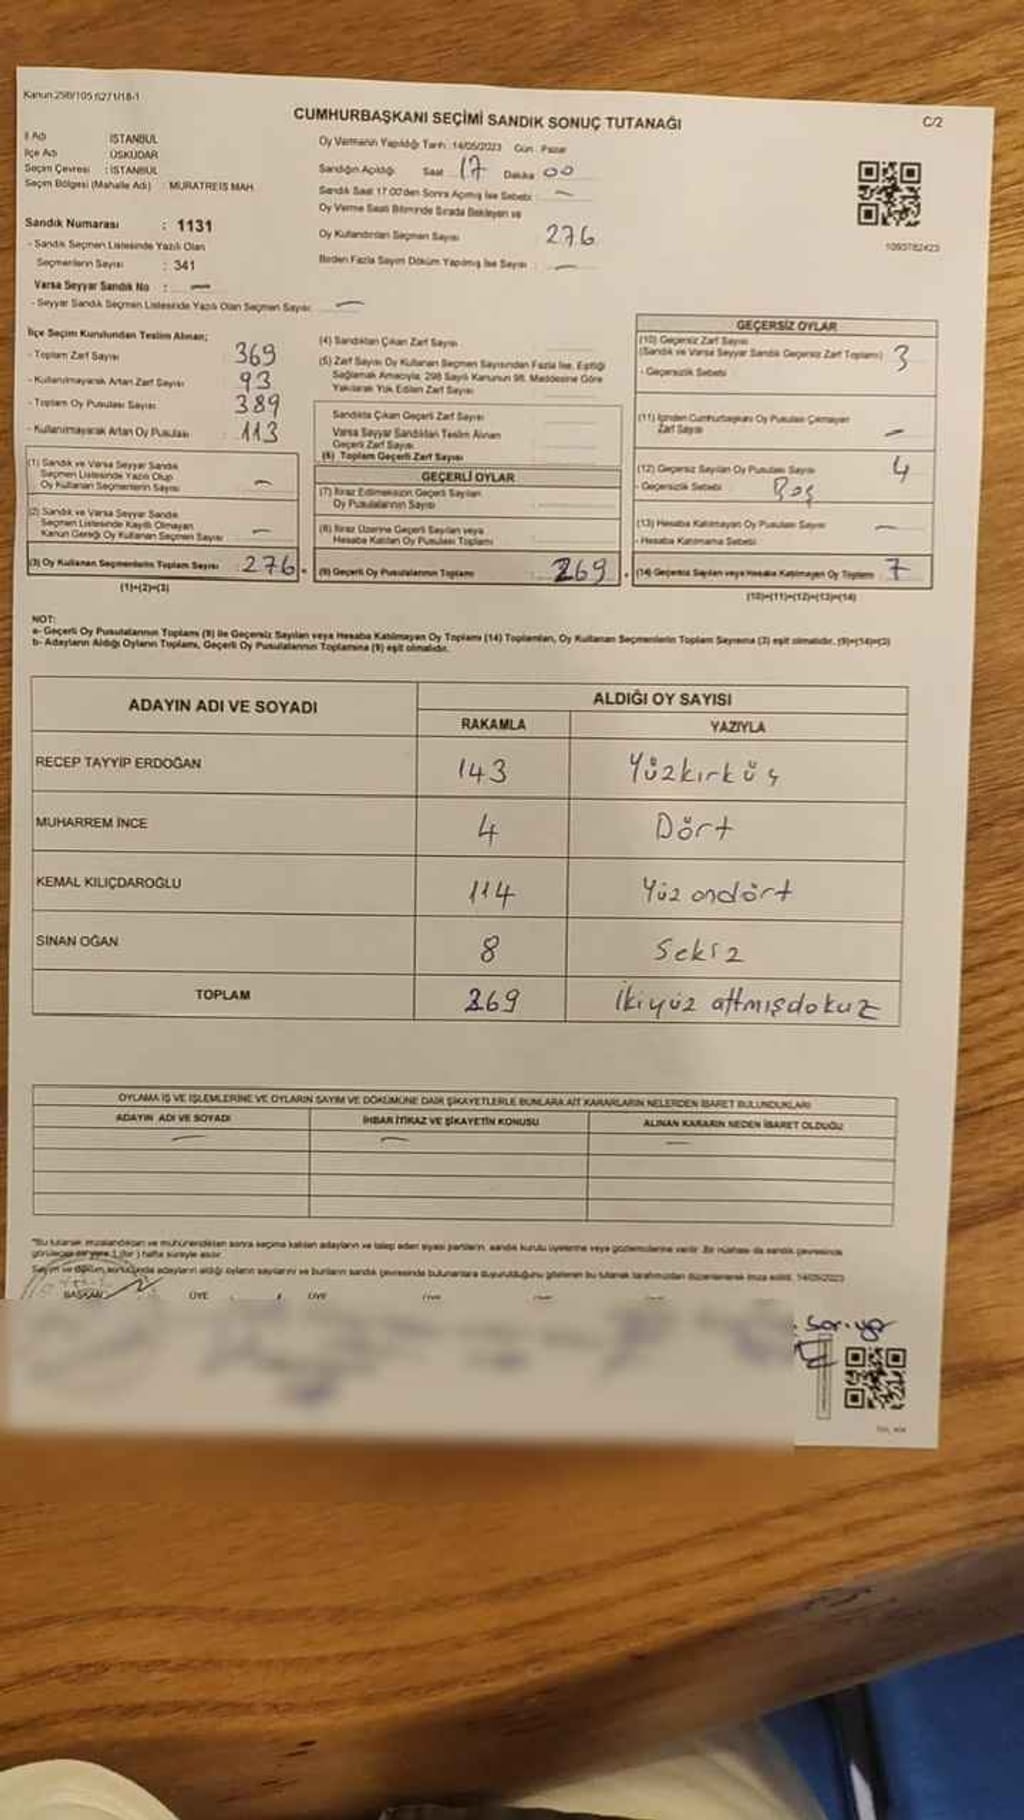 Kanun:298/105:6271/18-1
CUMHURBAŞKANI SEÇİMİ SANDIK SONUÇ TUTANAĞI
C/2
İl Adı : İSTANBUL
İlçe Adı : ÜSKÜDAR
Seçim Çevresi : İSTANBUL
Seçim Bölgesi (Mahalle Adı) : MURATREİS MAH.
Oy Vermenin Yapıldığı Tarih: 14/05/2023 Gün: Pazar
Sandığın Açıldığı Saat 17 Dakika 00
Sandık Saat 17:00'den Sonra Açılmış İse Sebebi: —
Oy Verme Saati Bitiminde Sırada Bekleyen ve
Oy Kullandırılan Seçmen Sayısı 276
Birden Fazla Sayım Döküm Yapılmış İse Sayısı : —
Sandık Numarası : 1131
- Sandık Seçmen Listesinde Yazılı Olan
Seçmenlerin Sayısı : 341
Varsa Seyyar Sandık No : —
- Seyyar Sandık Seçmen Listesinde Yazılı Olan Seçmen Sayısı: —
1093782423
İlçe Seçim Kurulundan Teslim Alınan;
- Toplam Zarf Sayısı 369
- Kullanılmayarak Artan Zarf Sayısı 93
- Toplam Oy Pusulası Sayısı 389
- Kullanılmayarak Artan Oy Pusulası 113
(1) Sandık ve Varsa Seyyar Sandık
Seçmen Listesinde Yazılı Olup
Oy Kullanan Seçmenlerin Sayısı —
(2) Sandık ve Varsa Seyyar Sandık
Seçmen Listesinde Kayıtlı Olmayan
Kanun Gereği Oy Kullanan Seçmen Sayısı —
(3) Oy Kullanan Seçmenlerin Toplam Sayısı 276
(1)+(2)=(3)
(4) Sandıktan Çıkan Zarf Sayısı
(5) Zarf Sayısı Oy Kullanan Seçmen Sayısından Fazla İse, Eşitliği
Sağlamak Amacıyla, 298 Sayılı Kanunun 98. Maddesine Göre
Yakılarak Yok Edilen Zarf Sayısı
Sandıkta Çıkan Geçerli Zarf Sayısı
Varsa Seyyar Sandıktan Teslim Alınan
Geçerli Zarf Sayısı
(6) Toplam Geçerli Zarf Sayısı
GEÇERLİ OYLAR
(7) İtiraz Edilmeksizin Geçerli Sayılan
Oy Pusulalarının Sayısı
(8) İtiraz Üzerine Geçerli Sayılan veya
Hesaba Katılan Oy Pusulası Toplamı
(9) Geçerli Oy Pusulalarının Toplamı 269
GEÇERSİZ OYLAR
(10) Geçersiz Zarf Sayısı
(Sandık ve Varsa Seyyar Sandık Geçersiz Zarf Toplamı) 3
- Geçersizlik Sebebi
(11) İçinden Cumhurbaşkanı Oy Pusulası Çıkmayan
Zarf Sayısı —
(12) Geçersiz Sayılan Oy Pusulası Sayısı 4
- Geçersizlik Sebebi Boş
(13) Hesaba Katılmayan Oy Pusulası Sayısı —
- Hesaba Katılmama Sebebi
(14) Geçersiz Sayılan veya Hesaba Katılmayan Oy Toplamı 7
(10)+(11)+(12)+(13)=(14)
NOT:
a- Geçerli Oy Pusulalarının Toplamı (9) ile Geçersiz Sayılan veya Hesaba Katılmayan Oy Toplamı (14) Toplamları, Oy Kullanan Seçmenlerin Toplam Sayısına (3) eşit olmalıdır. (9)+(14)=(3)
b- Adayların Aldığı Oyların Toplamı, Geçerli Oy Pusulalarının Toplamına (9) eşit olmalıdır.
ADAYIN ADI VE SOYADI
ALDIĞI OY SAYISI
RAKAMLA YAZIYLA
RECEP TAYYİP ERDOĞAN 143 Yüzkırküç
MUHARREM İNCE 4 Dört
KEMAL KILIÇDAROĞLU 114 Yüz ondört
SİNAN OĞAN 8 Sekiz
TOPLAM 269 İkiyüz altmışdokuz
OYLAMA İŞ VE İŞLEMLERİNE VE OYLARIN SAYIM VE DÖKÜMÜNE DAİR ŞİKAYETLERLE BUNLARA AİT KARARLARIN NELERDEN İBARET BULUNDUKLARI
ADAYIN ADI VE SOYADI İHBAR İTİRAZ VE ŞİKAYETİN KONUSU ALINAN KARARIN NEDEN İBARET OLDUĞU
— — —
*Bu tutanak imzalandıktan ve mühürlendikten sonra seçime katılan adayların ve talep eden siyasi partilerin, sandık kurulu üyelerine veya gözlemcilerine verilir. Bir nüshası da sandık çevresinde
görülecek bir yere 1 (bir) hafta süreyle asılır.
Sayım ve döküm sonucunda adayların aldığı oyların sayılarını ve bunların sandık çevresinde bulunanlara duyurulduğunu gösteren bu tutanak tarafımızdan düzenlenerek imza edildi. 14/05/2023
BAŞKAN ÜYE ÜYE ÜYE